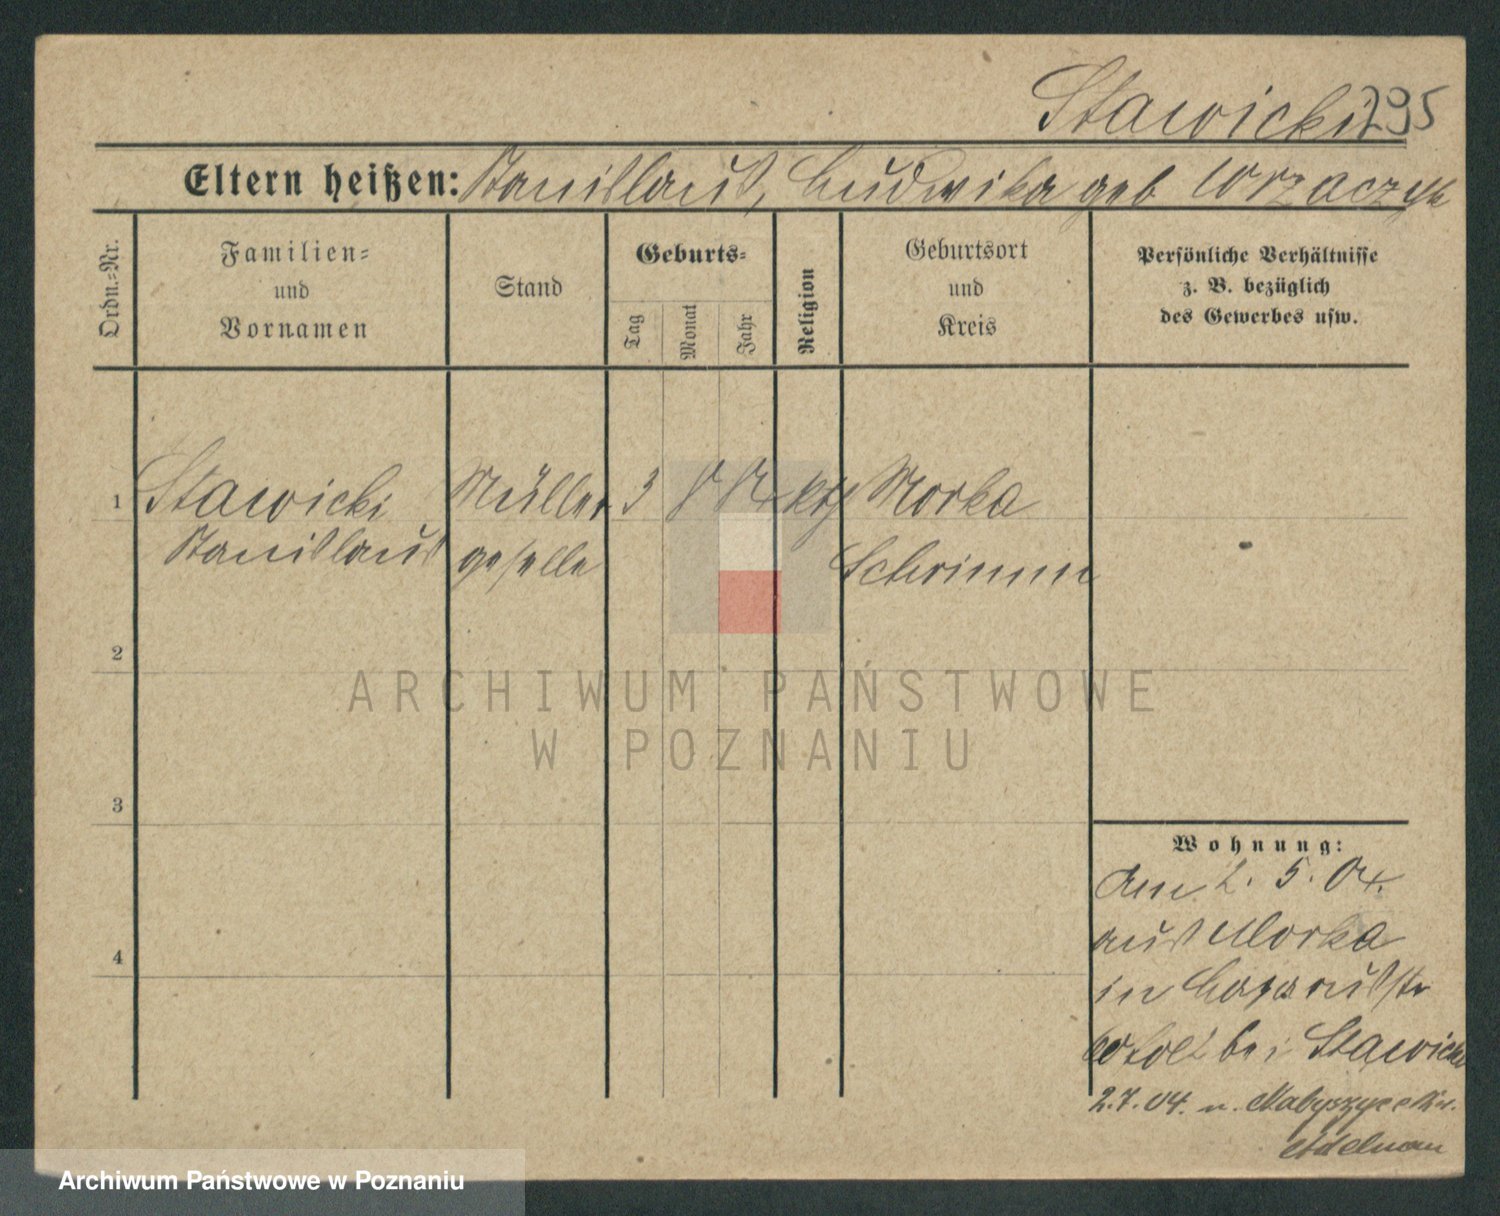 Stawicki 795
Eltern heißen: Stanislaus, Ludwika geb Wrzaczyk
Ordn.=Nr.
Familien=
und
Vornamen
Stand
Geburts=
Tag
Monat
Jahr
Religion
Geburtsort
und
Kreis
Persönliche Verhältnisse
z. B. bezüglich
des Gewerbes usw.
1 Stawicki Müller 3 kth Morka
Stanislaus geselle Schrimm
2
3
4
Wohnung:
Am 2. 5. 04.
aus Morka
in Lazarusstr
bei Stawicki
2.7.04. n.
Adelnau
ARCHIWUM PAŃSTWOWE
W POZNANIU
Archiwum Państwowe w Poznaniu